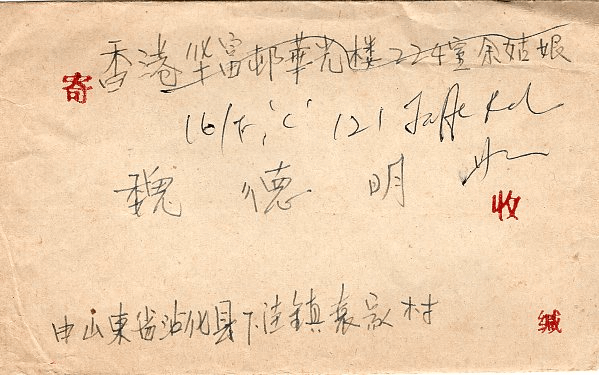 香港华富邨華光楼224室余姑娘
寄
16/F, 'C' 121 Jaffe Rd
魏德明
收
由山東省沾化县下洼鎮袁家村
缄